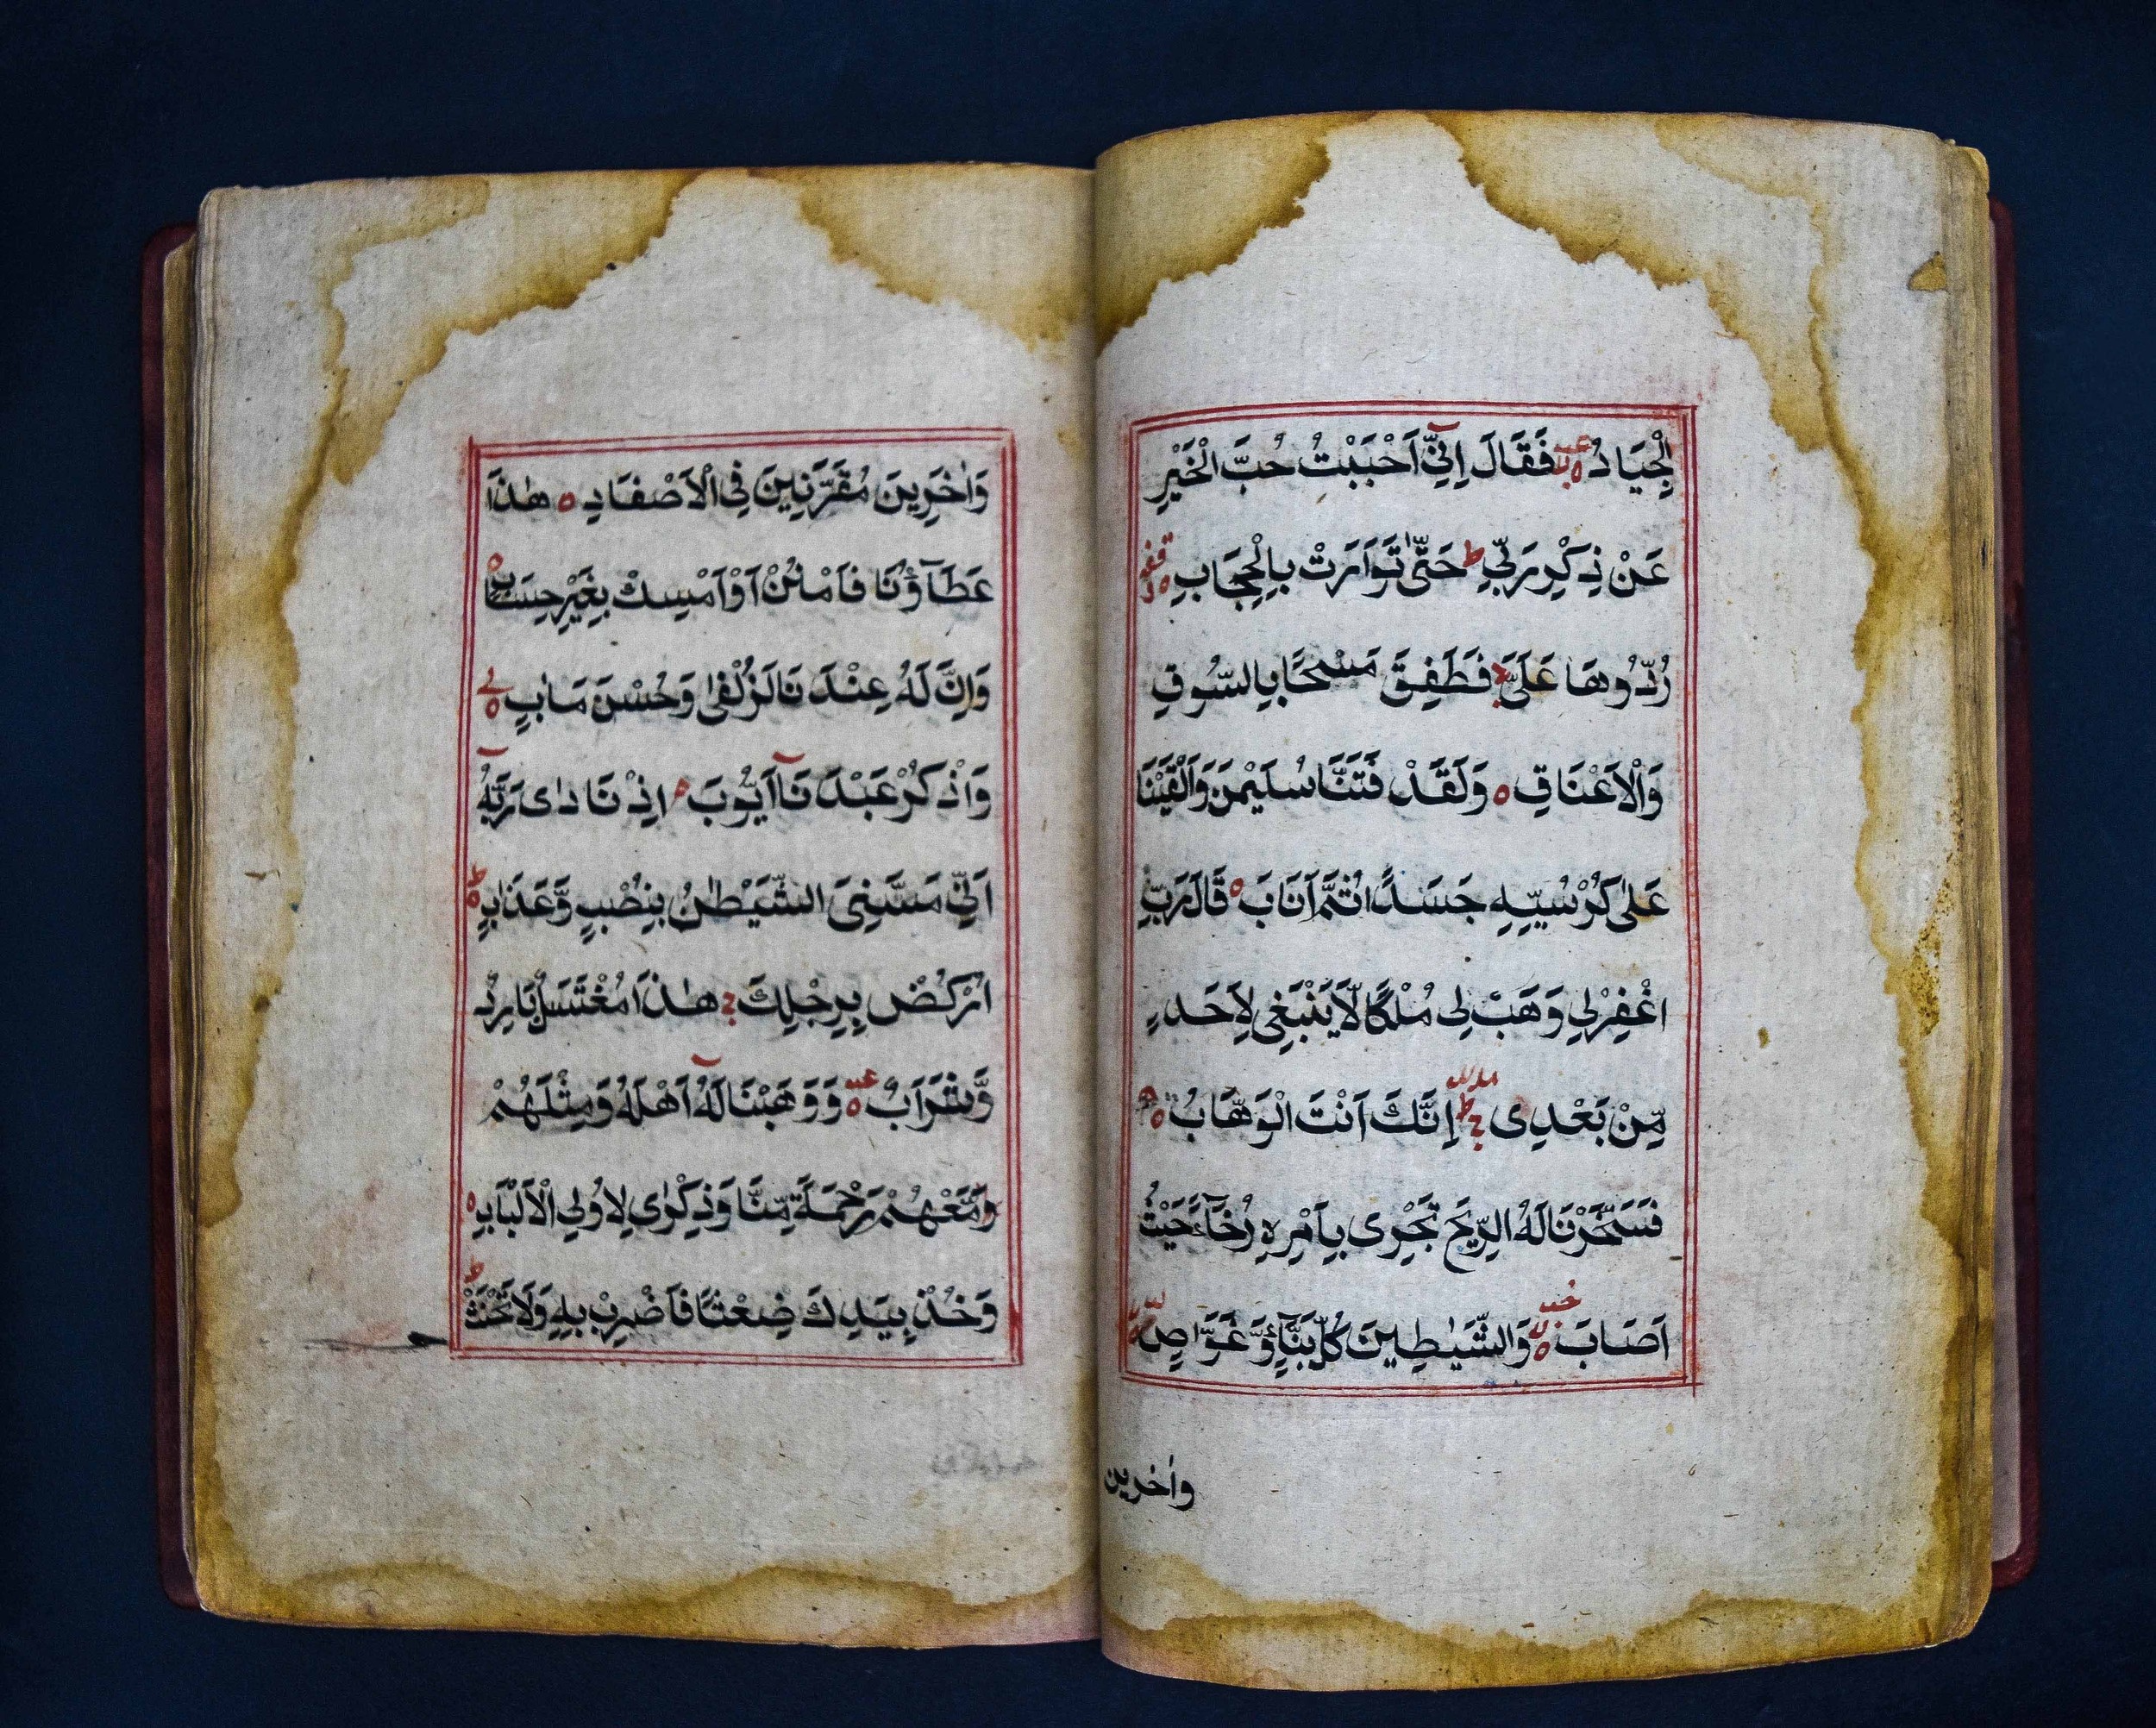 الْجِيَادُ فَقَالَ اِنِّیْٓ اَحْبَبْتُ حُبَّ الْخَيْرِ
عَنْ ذِكْرِ رَبِّیْ ط حَتّٰی تَوَارَتْ بِالْحِجَابِ قف
رُدُّوْهَا عَلَیَّ ط فَطَفِقَ مَسْحًا بِالسُّوْقِ
وَالْاَعْنَاقِ وَلَقَدْ فَتَنَّا سُلَيْمٰنَ وَاَلْقَيْنَا
عَلٰی كُرْسِيِّهٖ جَسَدًا ثُمَّ اَنَابَ قَالَ رَبِّ
اغْفِرْلِیْ وَهَبْ لِیْ مُلْكًا لَّا يَنْبَغِیْ لِاَحَدٍ
مِّنْ بَعْدِیْ ج اِنَّكَ اَنْتَ الْوَهَّابُ
فَسَخَّرْنَا لَهُ الرِّيْحَ تَجْرِیْ بِاَمْرِهٖ رُخَآءً حَيْثُ
اَصَابَ وَالشَّيٰطِيْنَ كُلَّ بَنَّآءٍ وَّغَوَّاصٍ
واٰخرين
وَاٰخَرِيْنَ مُقَرَّنِيْنَ فِی الْاَصْفَادِ هٰذَا
عَطَآؤُنَا فَامْنُنْ اَوْ اَمْسِكْ بِغَيْرِ حِسَابٍ
وَاِنَّ لَهٗ عِنْدَنَا لَزُلْفٰی وَحُسْنَ مَاٰبٍ
وَاذْكُرْ عَبْدَنَآ اَيُّوْبَ اِذْ نَادٰی رَبَّهٗٓ
اَنِّیْ مَسَّنِیَ الشَّيْطٰنُ بِنُصْبٍ وَّعَذَابٍ ط
اُرْكُضْ بِرِجْلِكَ ج هٰذَا مُغْتَسَلٌ بَارِدٌ
وَّشَرَابٌ وَوَهَبْنَا لَهٗٓ اَهْلَهٗ وَمِثْلَهُمْ
مَّعَهُمْ رَحْمَةً مِّنَّا وَذِكْرٰی لِاُولِی الْاَلْبَابِ
وَخُذْ بِيَدِكَ ضِغْثًا فَاضْرِبْ بِهٖ وَلَا تَحْنَثْ ط